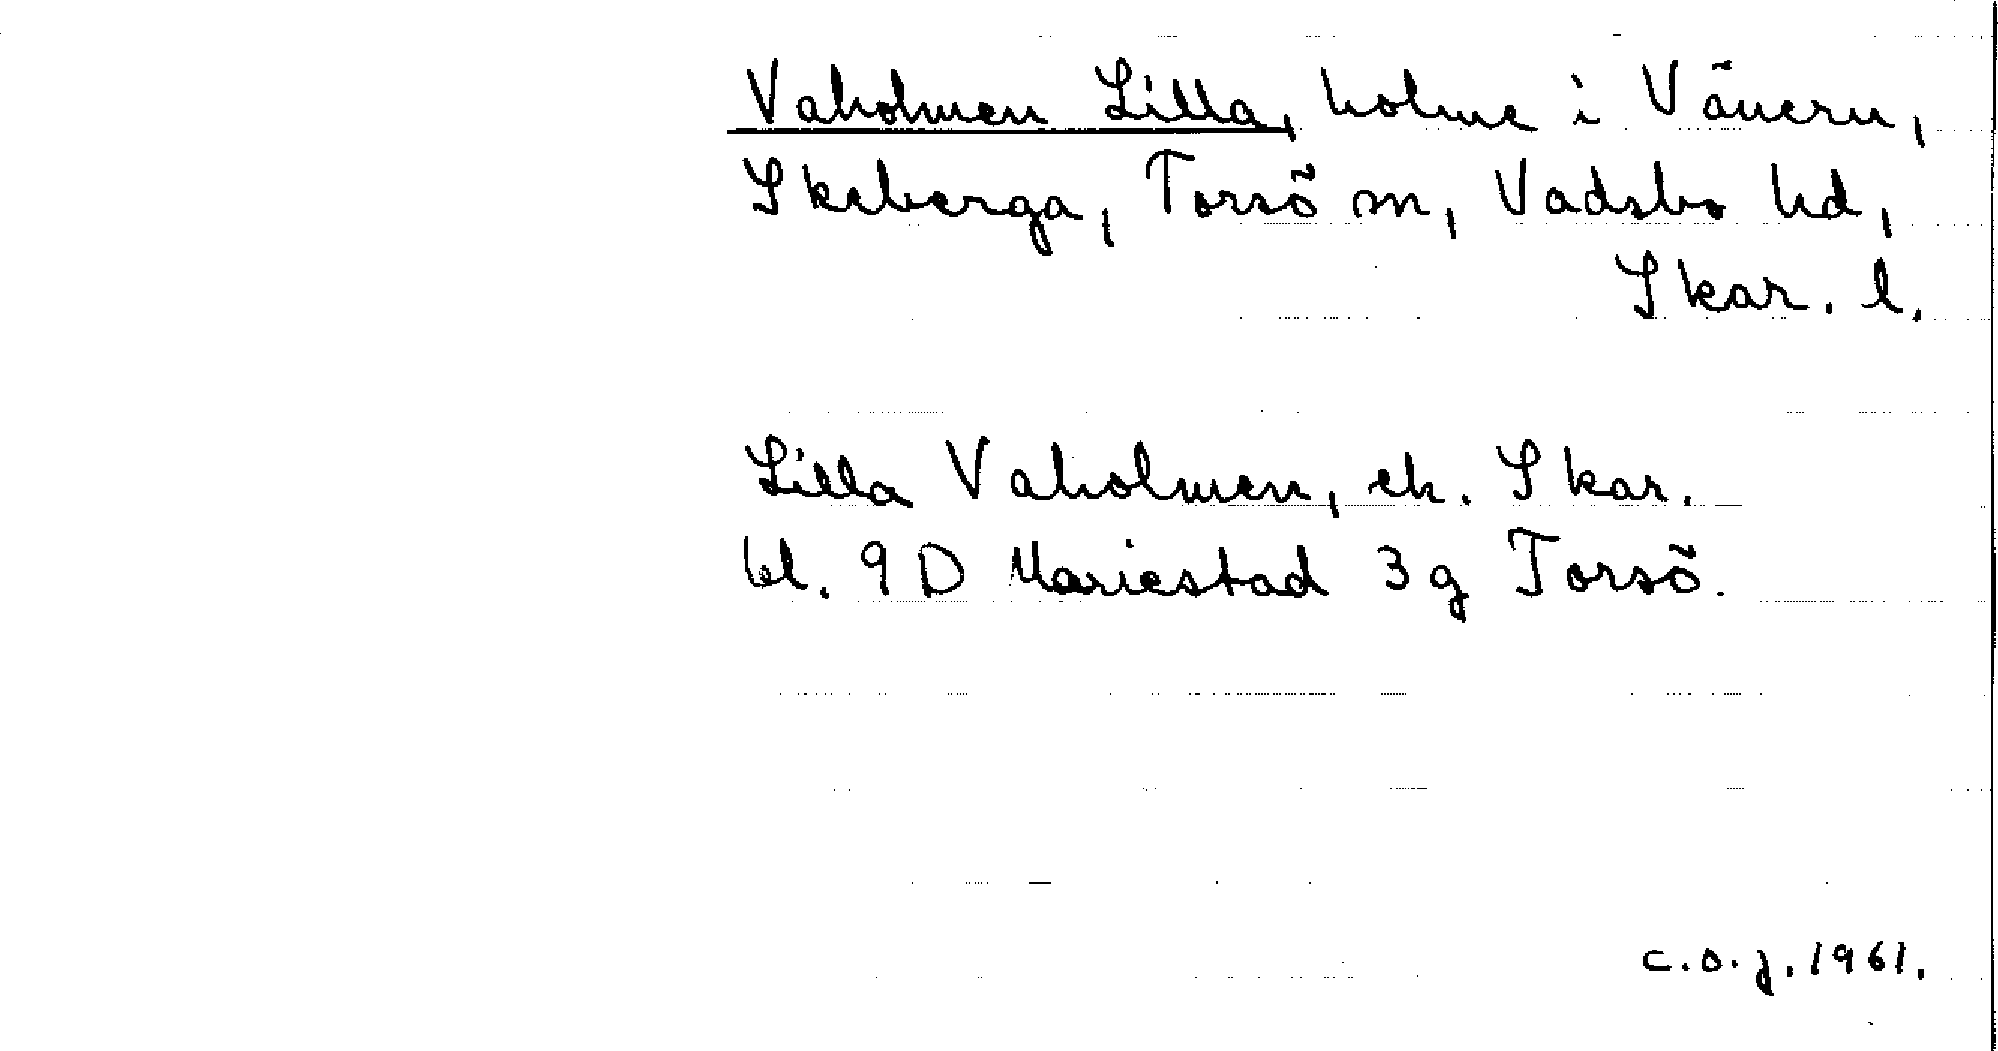 Vaholmen Lilla, holme i Vänern,
Skeberga, Torsö sn, Vadsbo hd,
Skar. l.
Lilla Vaholmen, ek. Skar.
bl. 9 D Mariestad 3g Torsö.
C.O.J. 1961.